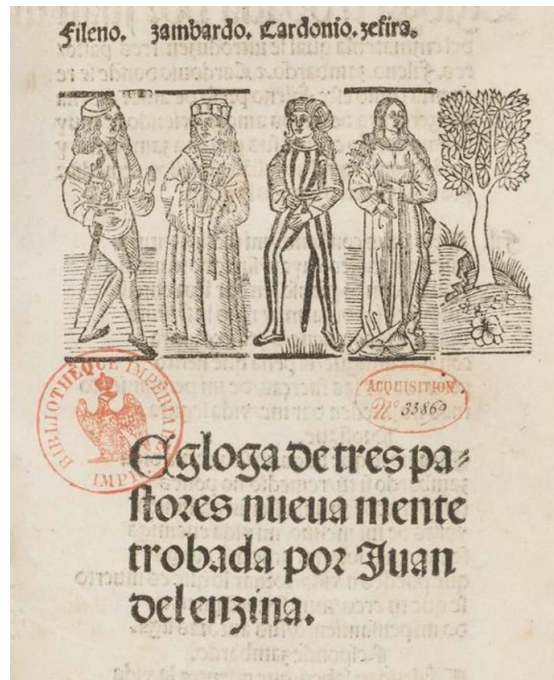 Fileno. zambardo. Cardonio. zefira.
BIBLIOTHÈQUE IMPÉRIALE
IMPR.
ACQUISITION
Nº 33869
Egloga de tres pa⸗
stores nueua mente
trobada por Juan
del enzina.